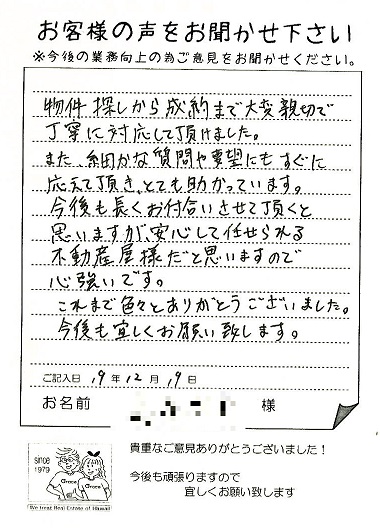 お客様の声をお聞かせ下さい
※今後の業務向上の為ご意見をお聞かせください。
物件探しから成約まで大変親切で
丁寧に対応して頂けました。
また、細かな質問や要望にもすぐに
応えて頂き、とても助かっています。
今後も長くお付合いさせて頂くと
思いますが、安心して任せられる
不動産屋様だと思いますので
心強いです。
これまで色々とありがとうございました。
今後も宜しくお願い致します。
ご記入日 19年12月19日
お名前 様
since
1979
Grace
Grace
We treat Real Estate of Hawaii
貴重なご意見ありがとうございました！
今後も頑張りますので
宜しくお願い致します